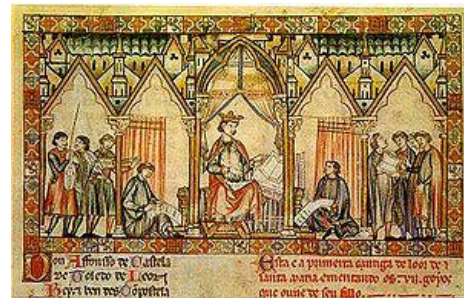 Don Affonsso de Castela
de Toledo de Leon
Rey e ben des Conpostela
Esta e a primeira cantiga de loor de
santa maria ementando os .vii. goyos
que ouve de seu fillo